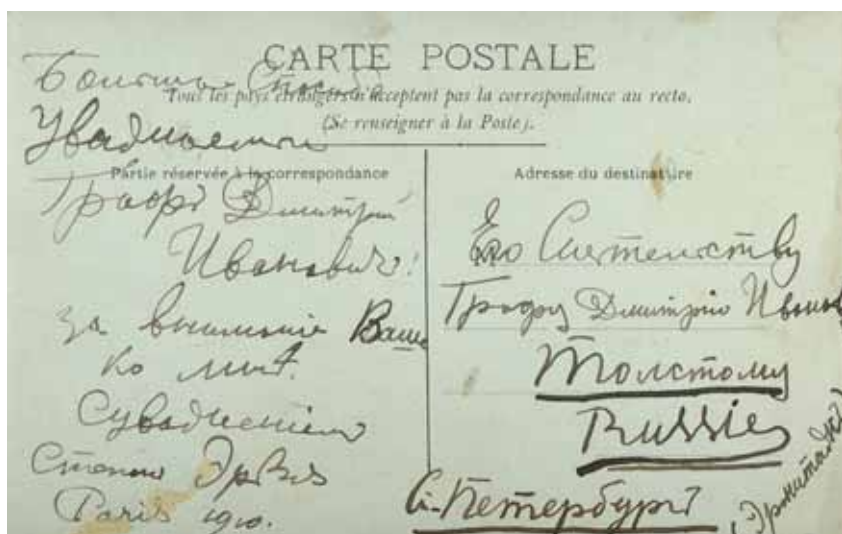 CARTE POSTALE
Tous les pays étrangers n'acceptent pas la correspondance au recto.
(Se renseigner à la Poste).
Partie réservée à la correspondance
Больш Спасибо
Уважаемый
Графъ Димитрій
Ивановичъ!
за вниманіе Ваше
ко мнѣ.
Съ уваженіемъ
Степанъ Эрьзя
Paris 1910.
Adresse du destinataire
Его Сиятельству
Графу Димитрію Иванов
Толстому
Russie
С.-Петербургъ
Эрмитажъ